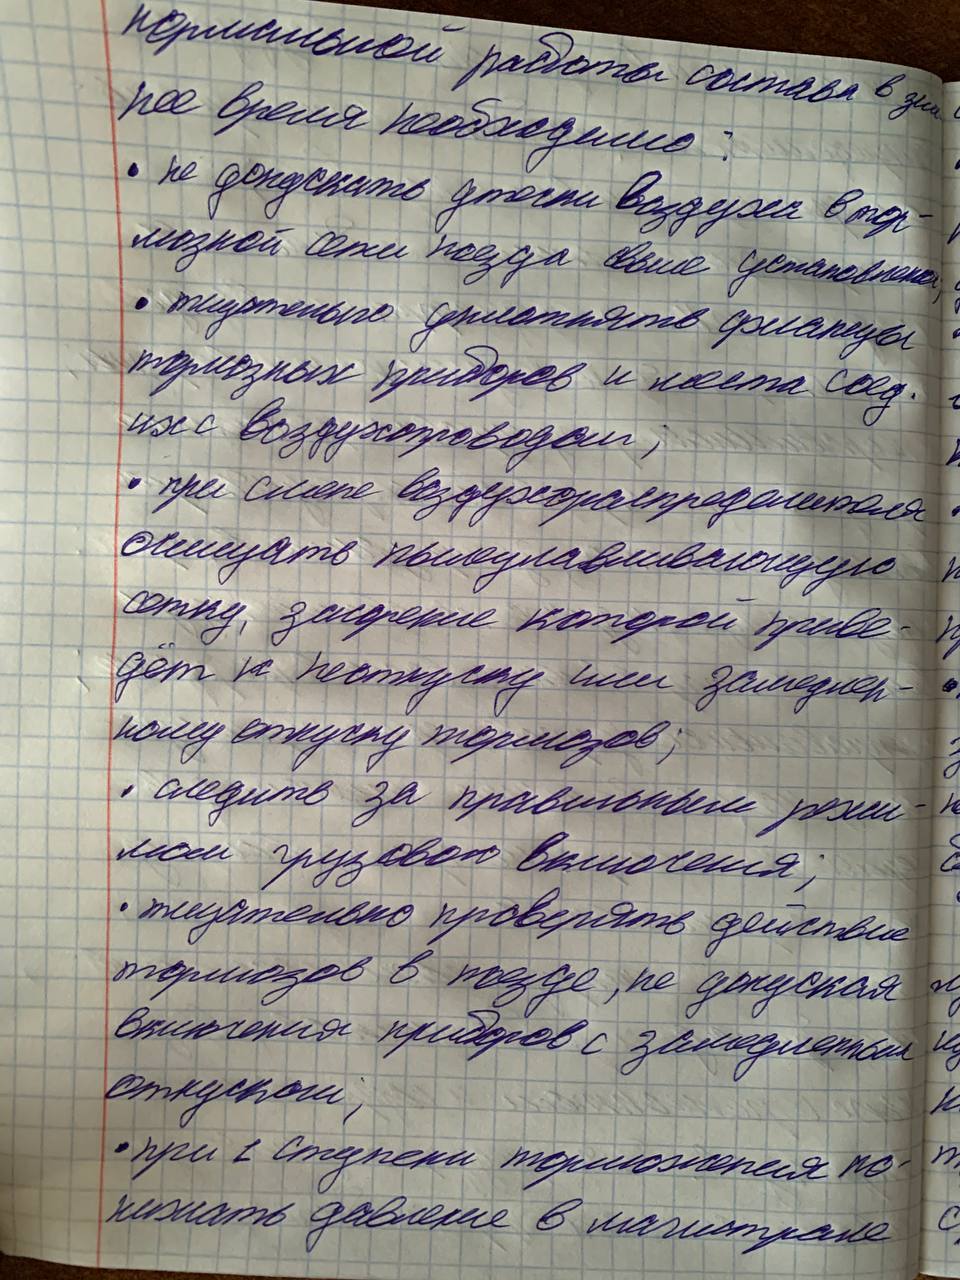 нормальной работы состава в зим
нее время необходимо:
• не допускать утечки воздуха в тор-
мозной сети поезда свыше установленной;
• тщательно уплотнять фланцы
тормозных приборов и места соед.
их с воздухопроводом;
• при смене воздухораспределителя
очищать пылеулавливающую
сетку, засорение которой приве-
дёт к неотпуску или замедлен-
ному отпуску тормозов;
• следить за правильным режи-
мом грузового включения;
• тщательно проверять действие
тормозов в поезде, не допуская
включения приборов с замедленным
отпуском;
• при 1 ступени торможения по-
нижать давление в магистрале